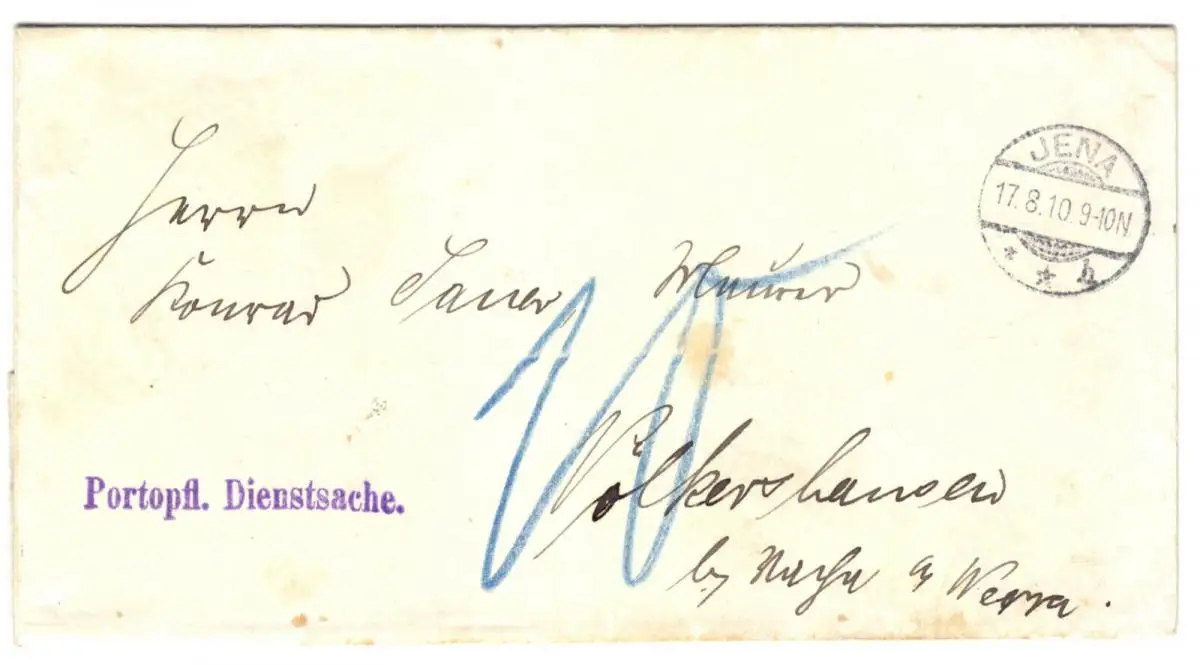 JENA
17.8.10.9-10N
* * h
Herrn
Konrad Sauer Maurer
10
Völkershausen
by Vacha a Werra.
Portopfl. Dienstsache.